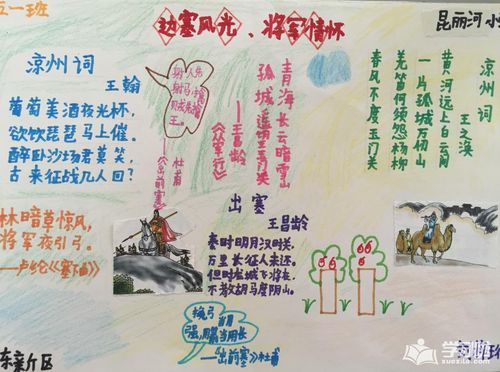 五一班
边塞风光、将军情怀
昆丽河小
凉州词
王翰
葡萄美酒夜光杯,
欲饮琵琶马上催。
醉卧沙场君莫笑,
古来征战几人回?
林暗草惊风,
将军夜引弓。
——卢纶《塞下曲》
射人先
射马,擒
贼先擒
王。
——《出前塞》
杜甫
青海长云暗雪山
孤城遥望玉门关
——王昌龄
《从军行》
凉州词
王之涣
黄河远上白云间
一片孤城万仞山
羌笛何须怨杨柳
春风不度玉门关
出塞
王昌龄
秦时明月汉时关,
万里长征人未还。
但时龙城飞将在,
不教胡马度阴山。
挽弓当
强,用箭当用长
——《出前塞》杜甫
东新区
学习啦
www.xuexila.com